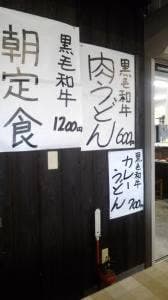 黒毛和牛
朝定食
1200円
黒毛和牛
肉うどん
600円
黒毛和牛
カレーうどん
700円